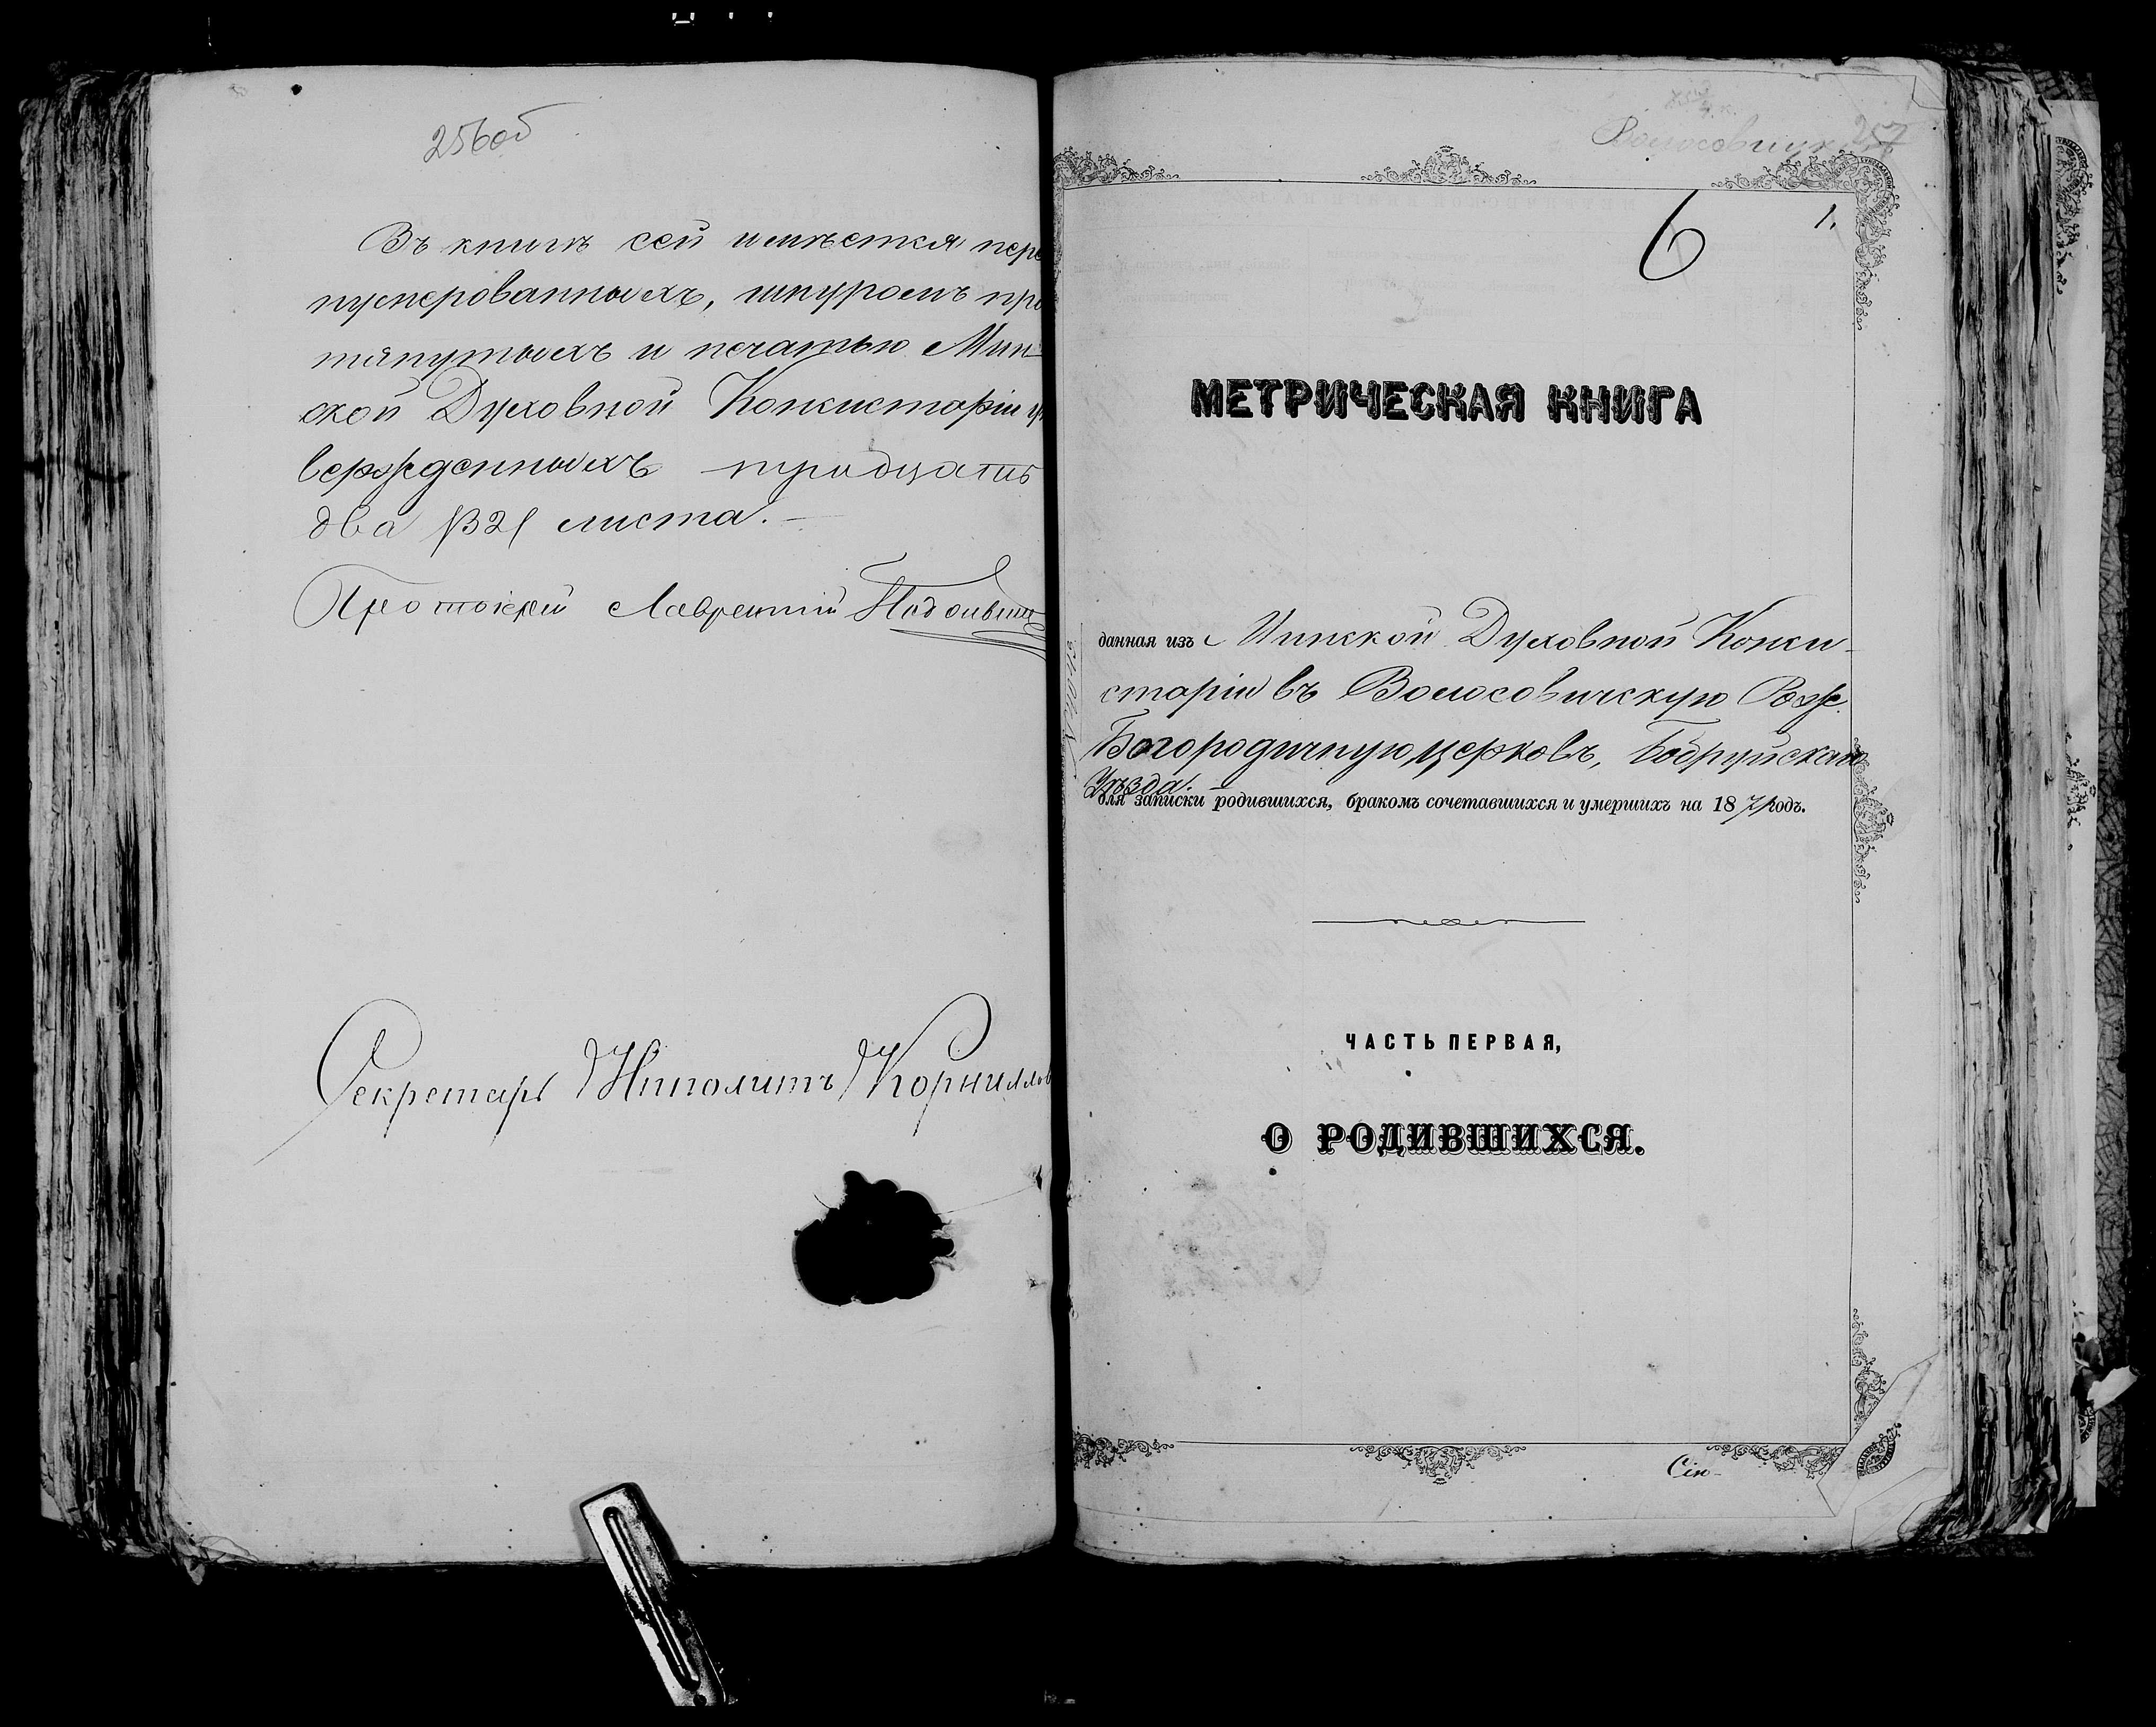 256об
Въ книгѣ сей имѣется пере
нумерованныхъ, шнуромъ про
тянутыхъ и печатью Мин-
ской Духовной Консисторіи ут
вержденныхъ тридцать
два /32/ листа.
Протоіерей Лаврентій
Секретарь Иполитъ Корнилов
Волосовичск. 257
6
1.
МЕТРИЧЕСКАЯ КНИГА
данная изъ Минской Духовной Конси-
сторіи въ Волосовичскую Рож.
Богородичную церковь, Бобруйскаго
Уѣзда.
для записки родившихся, бракомъ сочетавшихся и умершихъ на 187 годъ.
ЧАСТЬ ПЕРВАЯ,
О РОДИВШИХСЯ.
Сію